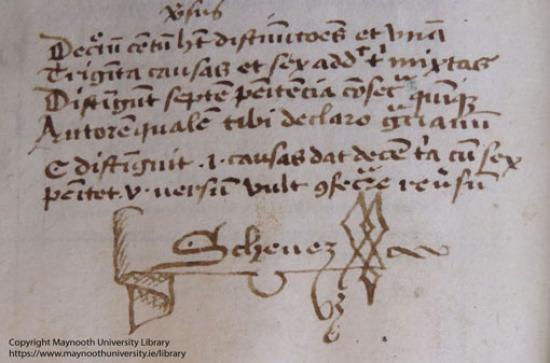 v̾sus
Decͬtū centū ht distinctōes et vnā
Triginta causas et sex addͬ t' mixtas
Distingūt septē penitēcia cōsecͬ quīq
Autorē qualē tibi declaro gͬcianū
C distinguit . 1 . causas dat decē tͬa cū sex
penitet . v . versum vult 9secͬre reūsū
Schevez
Copyright Maynooth University Library
https://www.maynoothuniversity.ie/library